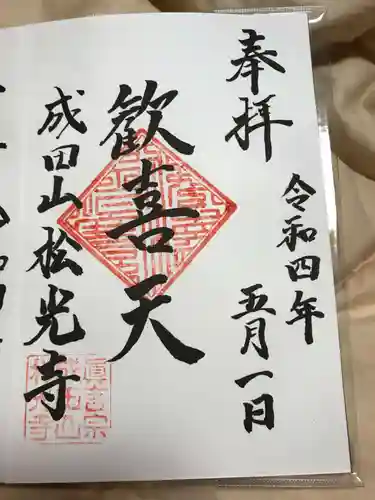 奉拝
令和四年
五月一日
歓喜天
成田山松光寺